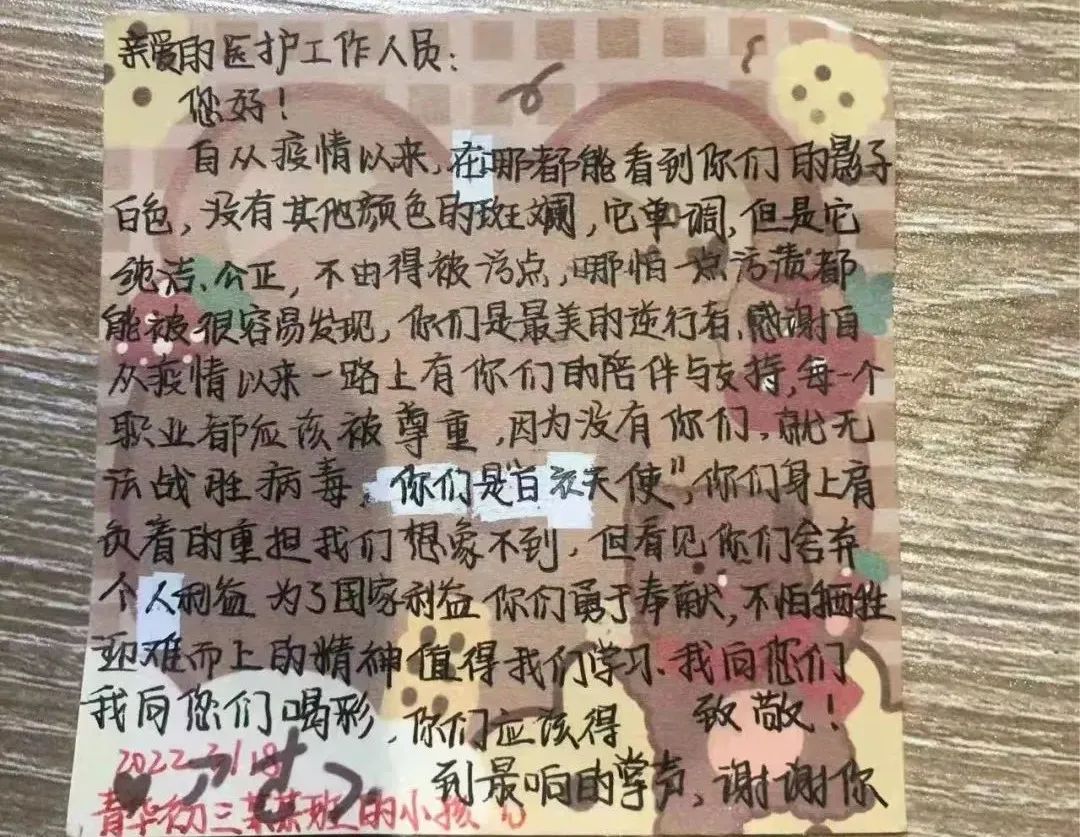 亲爱的医护工作人员：
您好！
自从疫情以来，在哪都能看到你们的影子
白色，没有其他颜色的斑斓，它单调，但是它
纯洁、公正，不由得被污点，哪怕一点污渍都
能被很容易发现，你们是最美的逆行者，感谢自
从疫情以来一路上有你们的陪伴与支持，每一个
职业都应该被尊重，因为没有你们，就无
法战胜病毒，你们是“白衣天使”，你们身上肩
负着的重担我们想象不到，但看见你们舍弃
个人利益 为了国家利益 你们勇于奉献，不怕牺牲
迎难而上的精神值得我们学习、我向您们
致敬！
我向您们喝彩，你们应该得
到最响的掌声，谢谢你
2022 3/18
青华初三某某班的小孩